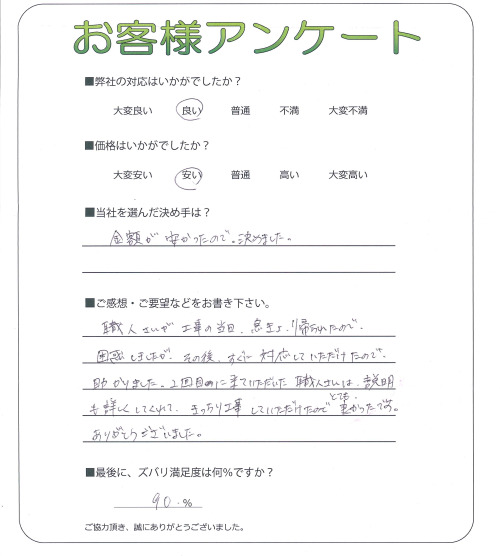 お客様アンケート
■弊社の対応はいかがでしたか？
大変良い 良い 普通 不満 大変不満
■価格はいかがでしたか？
大変安い 安い 普通 高い 大変高い
■当社を選んだ決め手は？
金額が安かったので。決めました。
■ご感想・ご要望などをお書き下さい。
職人さんが工事の当日、急きょ、帰られたので、
困惑しましたが、その後、すぐに対応していただけたので、
助かりました。2回目に来ていただいた職人さんは、説明
も詳しくしてくれて、きっちり工事していただけたのでとても、良かったです。
ありがとうございました。
■最後に、ズバリ満足度は何%ですか？
90.%
ご協力頂き、誠にありがとうございました。